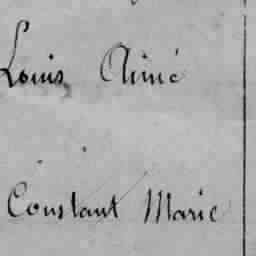 Louis Aimé
Constant Marie